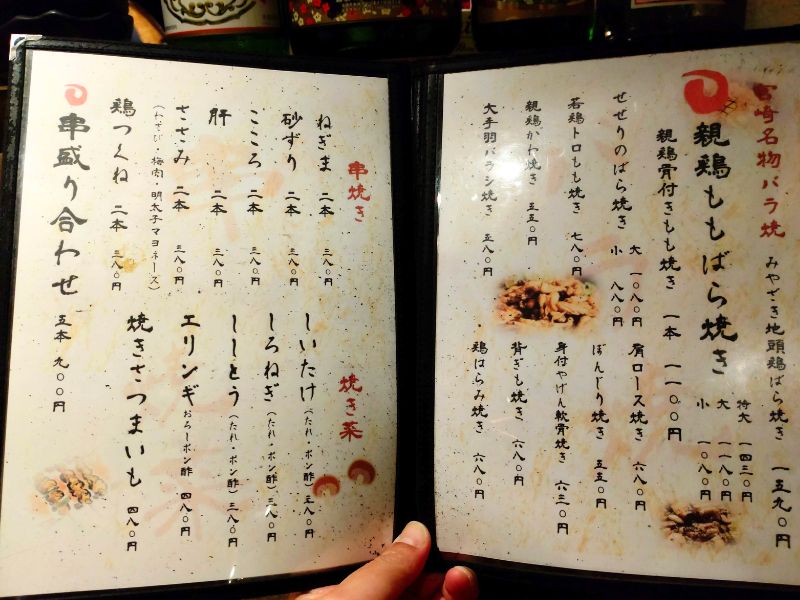 宮崎名物バラ焼
みやざき地頭鶏ばら焼き 一五九〇円
親鶏ももばら焼き
特大 一四三〇円
大 一一八〇円
小 一〇八〇円
親鶏骨付きもも焼き 一本 一一〇〇円
せせりのばら焼き
大 一〇八〇円
小 八八〇円
若鶏トロもも焼き 七八〇円
親鶏かわ焼き 五五〇円
大手羽バラシ焼き 五八〇円
肩ロース焼き 六八〇円
ぼんじり焼き 五五〇円
身付やげん軟骨焼き 六三〇円
背ぎも焼き 六八〇円
鶏はらみ焼き 六八〇円
串焼き
ねぎま 二本 三八〇円
砂ずり 二本 三八〇円
こころ 二本 三八〇円
肝 二本 三八〇円
ささみ 二本 三八〇円
(わさび・梅肉・明太子マヨネーズ)
鶏つくね 二本 三八〇円
串盛り合わせ 五本 九〇〇円
焼き菜
しいたけ(たれ・ポン酢) 三八〇円
しろねぎ(たれ・ポン酢) 三八〇円
ししとう(たれ・ポン酢) 三八〇円
エリンギ おろしポン酢 四八〇円
焼きさつまいも 四八〇円